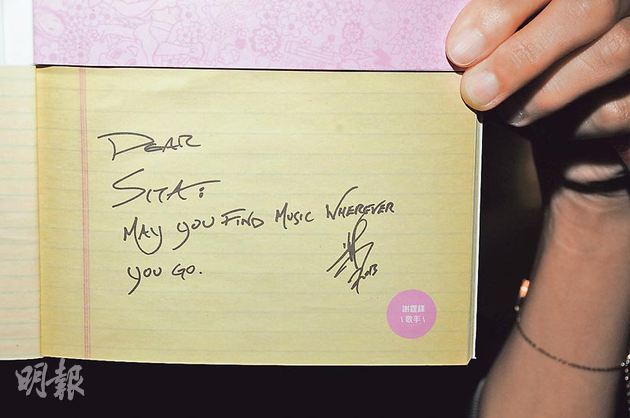 DEAR
SITA:
MAY YOU FIND MUSIC WHEREVER
YOU GO.
2013
謝霆鋒
\ 歌手 \
明報